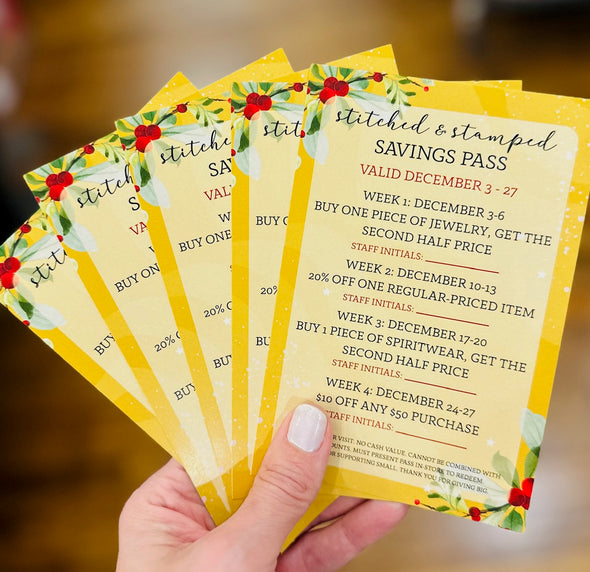 stitched & stamped
SAVINGS PASS
VALID DECEMBER 3 - 27
WEEK 1: DECEMBER 3-6
BUY ONE PIECE OF JEWELRY, GET THE
SECOND HALF PRICE
STAFF INITIALS:
WEEK 2: DECEMBER 10-13
20% OFF ONE REGULAR-PRICED ITEM
STAFF INITIALS:
WEEK 3: DECEMBER 17-20
BUY 1 PIECE OF SPIRITWEAR, GET THE
SECOND HALF PRICE
STAFF INITIALS:
WEEK 4: DECEMBER 24-27
$10 OFF ANY $50 PURCHASE
STAFF INITIALS:
VISIT. NO CASH VALUE. CANNOT BE COMBINED WITH
MUST PRESENT PASS IN-STORE TO REDEEM.
SUPPORTING SMALL. THANK YOU FOR GIVING BIG.